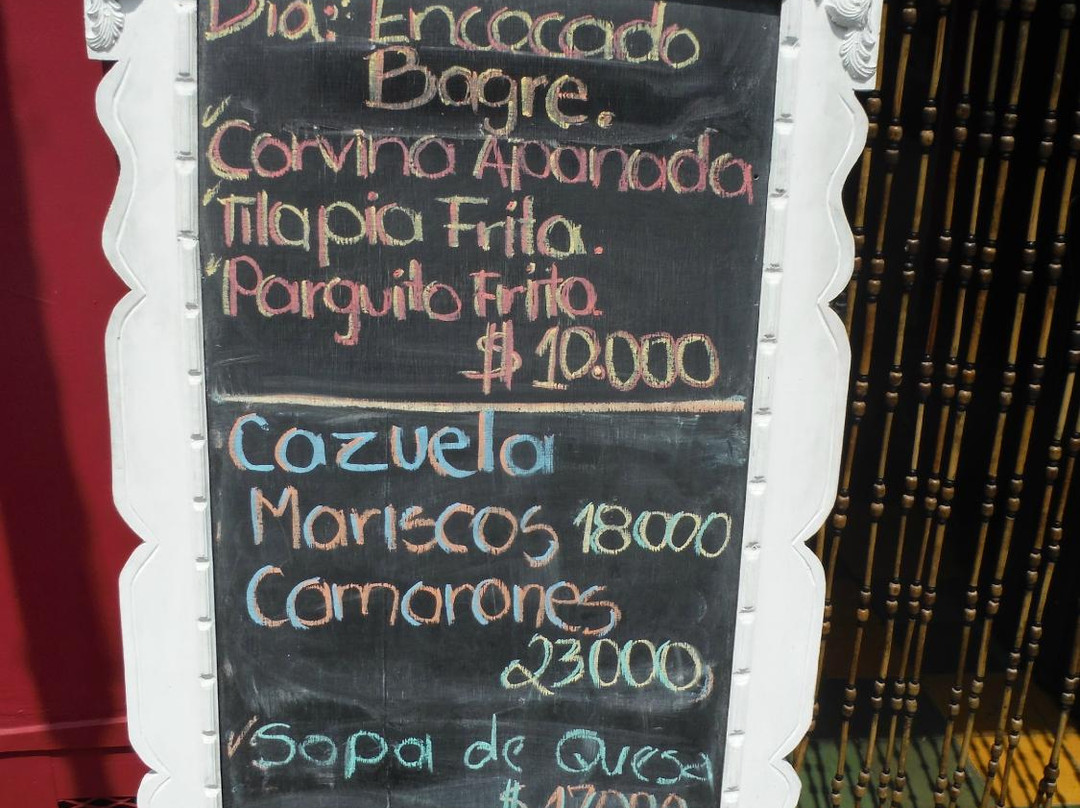 Día: Encocado
Bagre.
Corvina Apanada
Tilapia Frita.
Parguito Frito.
$ 10.000
Cazuela
Mariscos 18000
Camarones
23000
Sopa de Queso
$ 17000